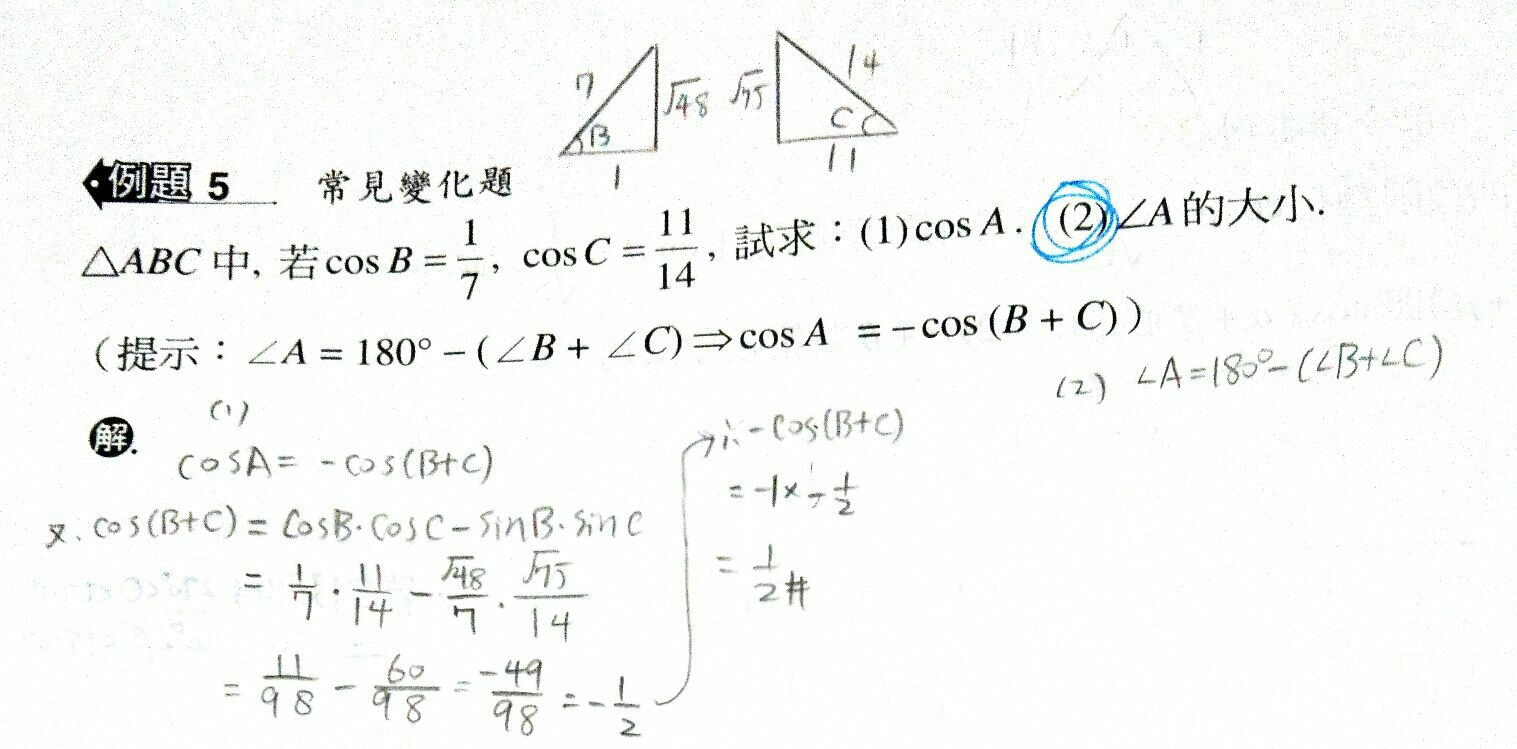 7 √48 √75 14
B C
1 11
例題 5 常見變化題
△ABC 中, 若 cos B = 1/7, cos C = 11/14, 試求:(1) cos A. (2) ∠A 的大小.
(提示:∠A = 180° − (∠B + ∠C) ⇒ cos A = −cos (B + C))
(2) ∠A = 180° − (∠B+∠C)
解. (1)
cosA = −cos(B+C)
又. cos(B+C) = cosB·cosC − sinB·sinC
= 1/7 · 11/14 − √48/7 · √75/14
= 11/98 − 60/98 = −49/98 = −1/2
∴ −cos(B+C)
= −1 × −1/2
= 1/2 #